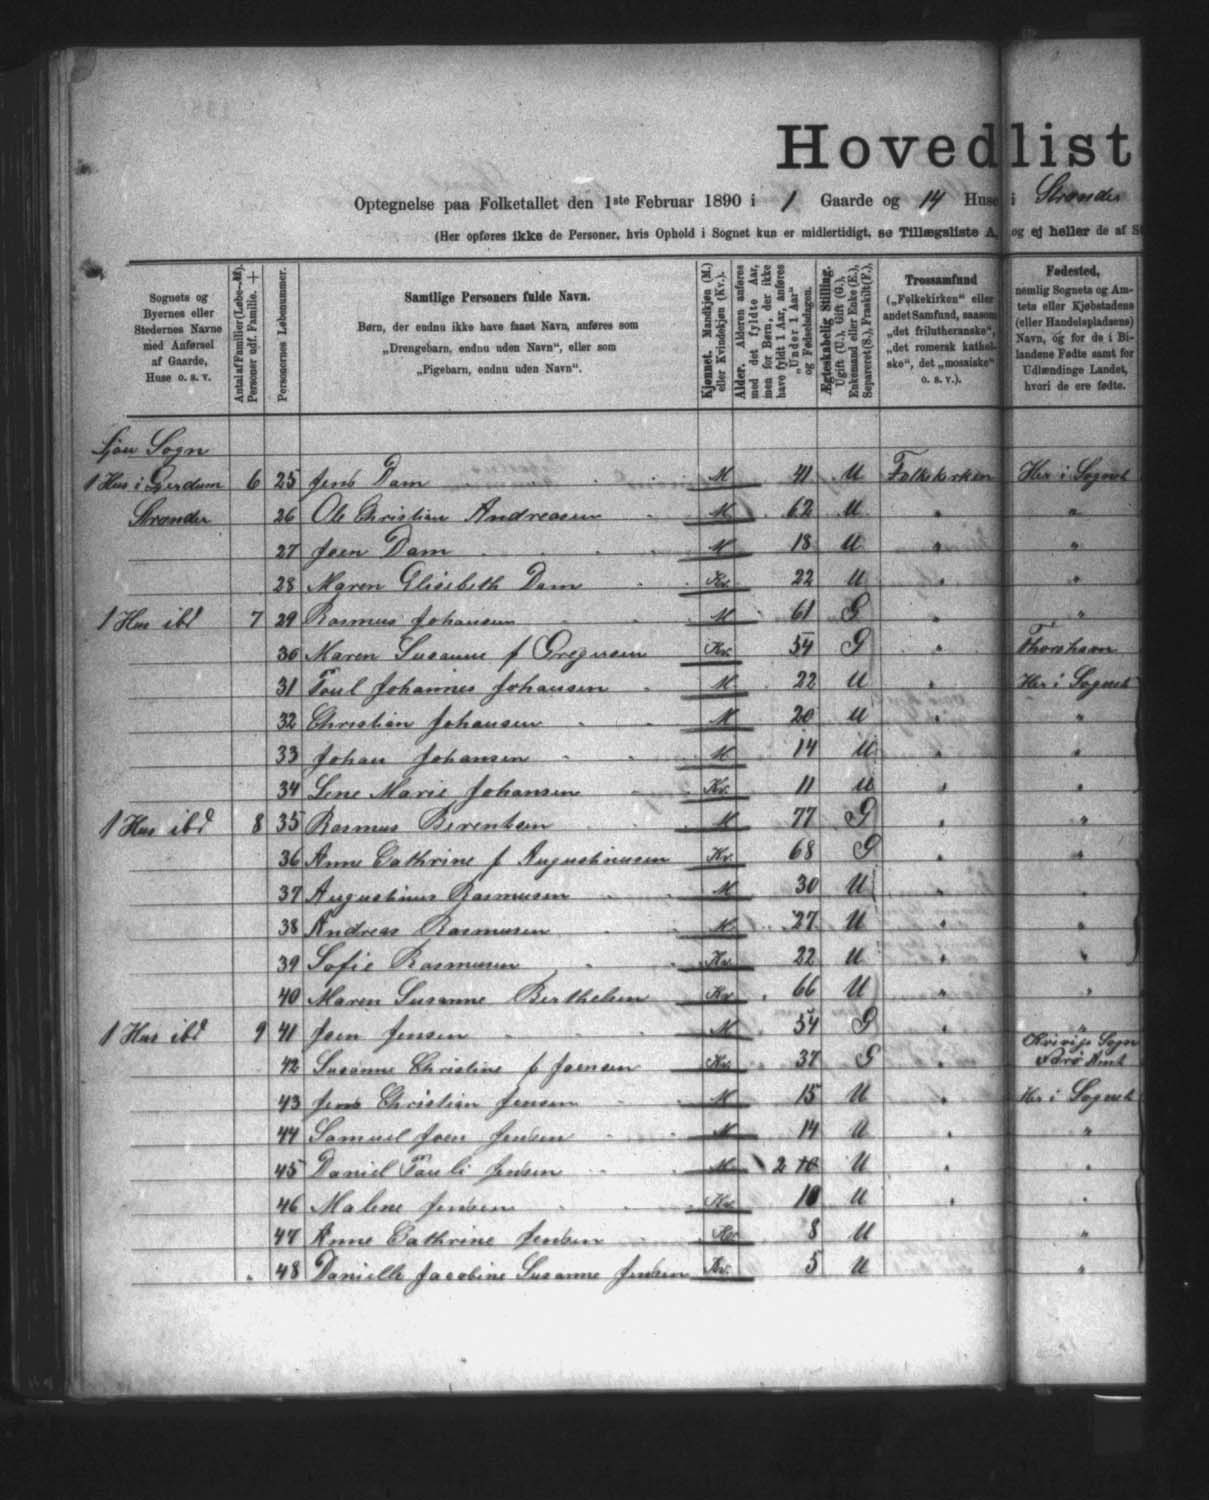 Hovedlist
Optegnelse paa Folketallet den 1ste Februar 1890 i 1 Gaarde og 14 Huse i Strender
(Her opføres ikke de Personer, hvis Ophold i Sognet kun er midlertidigt, se Tillægsliste A, og ej heller de af S
Sognets og Byernes eller Stedernes Navne med Anførsel af Gaarde, Huse o. s. v.
Antal af Familier (Løbe-№). Personer udf. Familie. +
Personernes Løbenummer.
Samtlige Personers fulde Navn.
Børn, der endnu ikke have faaet Navn, anføres som „Drengebarn, endnu uden Navn“, eller som „Pigebarn, endnu uden Navn“.
Kjønnet. Mandkjøn (M.) eller Kvindekjøn (Kv.).
Alder. Alderen anføres med det fyldte Aar, men for Børn, der ikke have fyldt 1 Aar, anføres „Under 1 Aar“ og Fødselsdagen.
Ægteskabelig Stilling. Ugift (U.), Gift (G.), Enkemand eller Enke (E.), Separeret (S.), Fraskilt (F.).
Trossamfund („Folkekirken“ eller andet Samfund, saasom „det frilutheranske“, „det romersk katholske“, det „mosaiske“ o. s. v.).
Fødested, nemlig Sognets og Amtets eller Kjøbstadens (eller Handelspladsens) Navn, og for de i Bilandene Fødte samt for Udlændinge Landet, hvori de ere fødte.
Sogn
1 Hus i 6 25 Jens Dam M 41 U Folkekirken Her i Sognet
Strender 26 Ole Christian Andreasen M 62 U " "
27 Joen Dam M 18 U " "
28 Maren Elisebeth Dam Kv. 22 U " "
1 Hus ibd 7 29 Rasmus Johansen M 61 G " "
30 Maren Susanne f Gregersen Kv. 54 G " Thorshavn
31 Poul Johannes Johansen M 22 U " Her i Sognet
32 Christian Johansen M 20 U " "
33 Johan Johansen M 14 U " "
34 Lene Marie Johansen Kv. 11 U " "
1 Hus ibd 8 35 Rasmus Berentsen M 77 G " "
36 Anne Cathrine f Augustinusen Kv. 68 G " "
37 Augustinus Rasmusen M 30 U " "
38 Andreas Rasmusen M 27 U " "
39 Sofie Rasmusen Kv. 22 U " "
40 Maren Susanne Berthelsen Kv. 66 U " "
1 Hus ibd 9 41 Joen Jensen M 54 G " "
42 Susanne Christine f Joensen Kv. 37 G " Sogn Færø Amt
43 Jens Christian Jensen M 15 U " Her i Sognet
44 Samuel Joen Jensen M 14 U " "
45 Daniel Pauli Jensen M 2 U " "
46 Malene Jensen Kv. 10 U " "
47 Anne Cathrine Jensen Kv 8 U "
48 Danielle Jacobine Susanne Jensen Kv. 5 U "